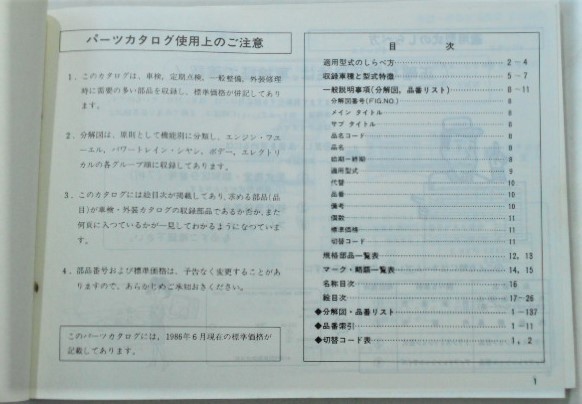 パーツカタログ使用上のご注意
1．このカタログは、車検、定期点検、一般整備、外装修理
時に需要の多い部品を収録し、標準価格が併記してあり
ます。
2．分解図は、原則として機能別に分類し、エンジン・フユ
ーエル、パワートレイン・シヤシ、ボデー、エレクトリ
カルの各グループ順に収録してあります。
3．このカタログには絵目次が掲載してあり、求める部品(品
目)が車検・外装カタログの収録部品であるか否か、また
何頁に入つているかが一見してわかるようになつていま
す。
4．部品番号および標準価格は、予告なく変更することがあ
りますので、あらかじめご承知おきください。
このパーツカタログには、1986年6月現在の標準価格が
記載してあります。
目 次
適用型式のしらべ方 2－4
収録車種と型式特徴 5－7
一般説明事項(分解図、品番リスト) 8－11
分解図番号(FIG.NO.) 8
メイン タイトル 8
サブ タイトル 8
品名コード 8
品名 8
始期－終期 8
適用型式 9
代替 10
品番 10
備考 10
個数 11
標準価格 11
切替コード 11
規格部品一覧表 12, 13
マーク・略語一覧表 14, 15
名称目次 16
絵目次 17－26
◆分解図・品番リスト 1－137
◆品番索引 1－11
◆切替コード表 1, 2
1